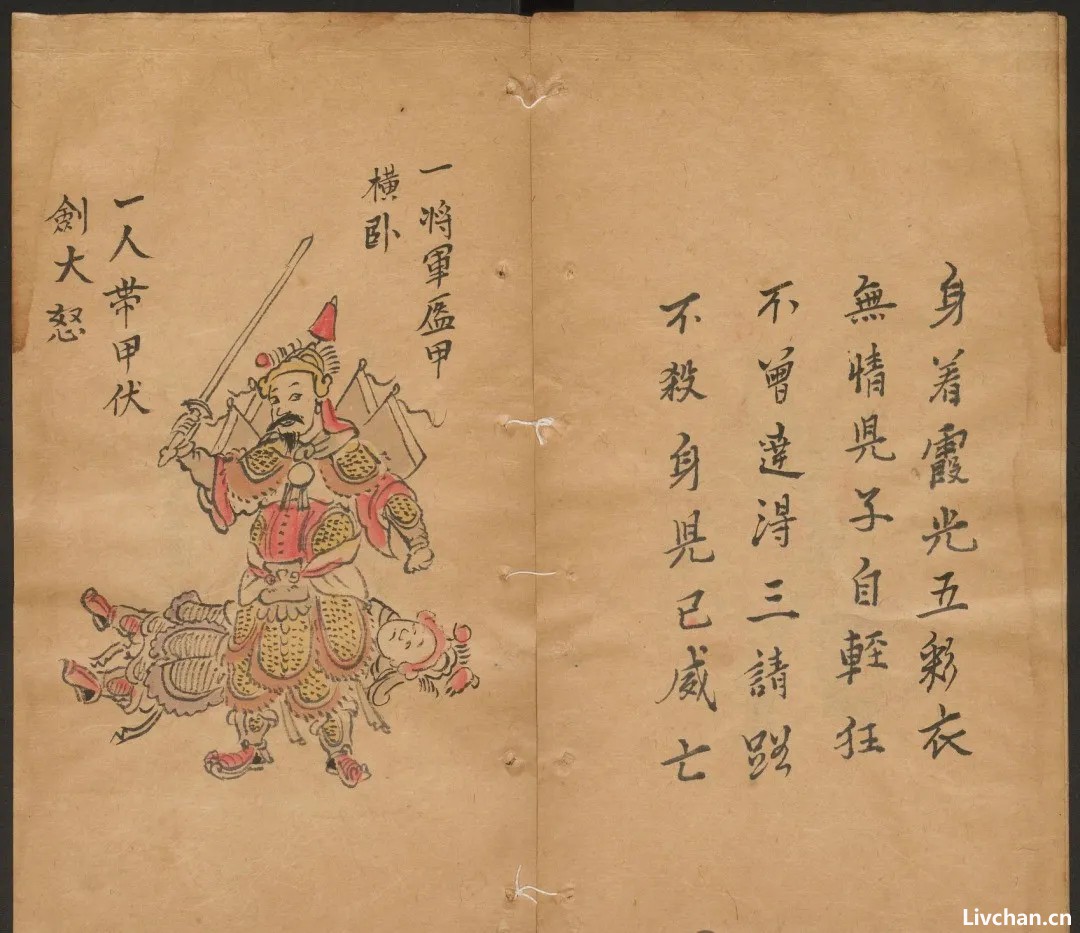 身着霞光五彩衣
無情児子自輕狂
不曾達淂三請路
不殺身児已威亡
一將軍盔甲
横卧
一人帶甲伏
劍大怒
Livchan.cn